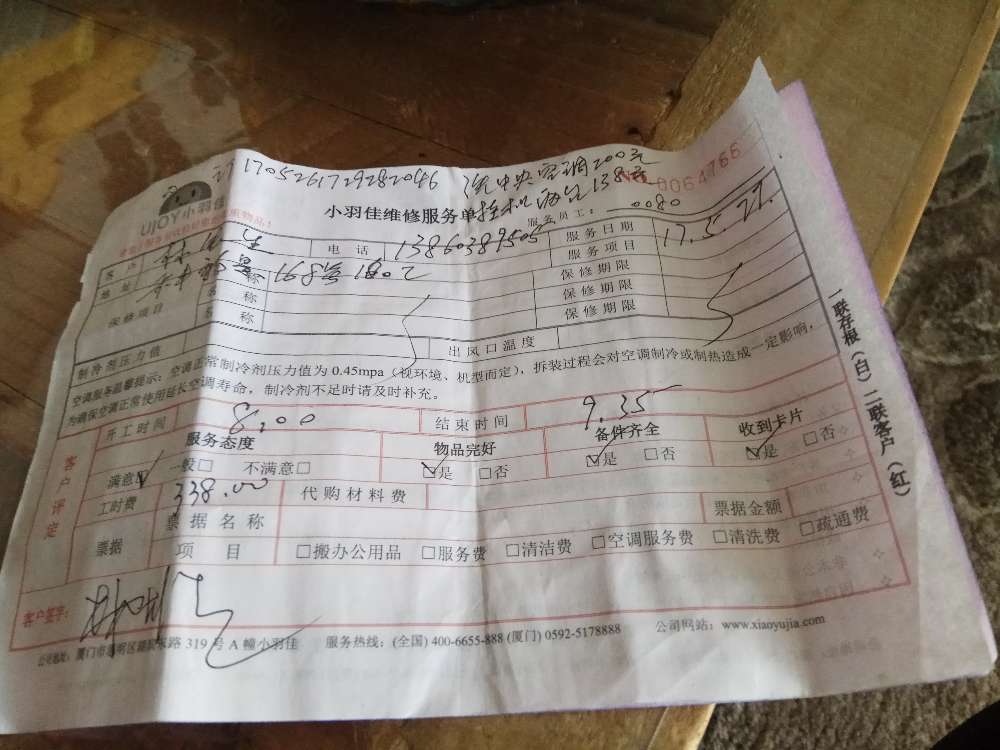 1705261729282046 洗中央空调200元
挂机两台138元
UJOY小羽佳
小羽佳维修服务单
No 0064766
服务员工：0080
客户 林 生 电话 13860389505 服务日期 17.5.27.
地址 168号 1602 服务项目
保修项目 名称 保修期限
名称 保修期限
名称 保修期限
制冷剂压力值 出风口温度
空调服务温馨提示：空调正常制冷剂压力值为0.45mpa（视环境、机型而定），拆装过程会对空调制冷或制热造成一定影响，
为确保空调正常使用延长空调寿命，制冷剂不足时请及时补充。
开工时间 8.00 结束时间 9.35
客户评定
服务态度 物品完好 备件齐全 收到卡片
满意☑ 一般□ 不满意□ ☑是 □否 ☑是 □否 ☑是 □否
工时费 338.00 代购材料费
票据 票据名称 票据金额
项目 □搬办公用品 □服务费 □清洁费 □空调服务费 □清洗费 □疏通费
客户签字：
公司地址：厦门市思明区 东路319号A幢小羽佳 服务热线：(全国) 400-6655-888 (厦门) 0592-5178888 公司网站：www.xiaoyujia.com
一联存根（白）二联客户（红）